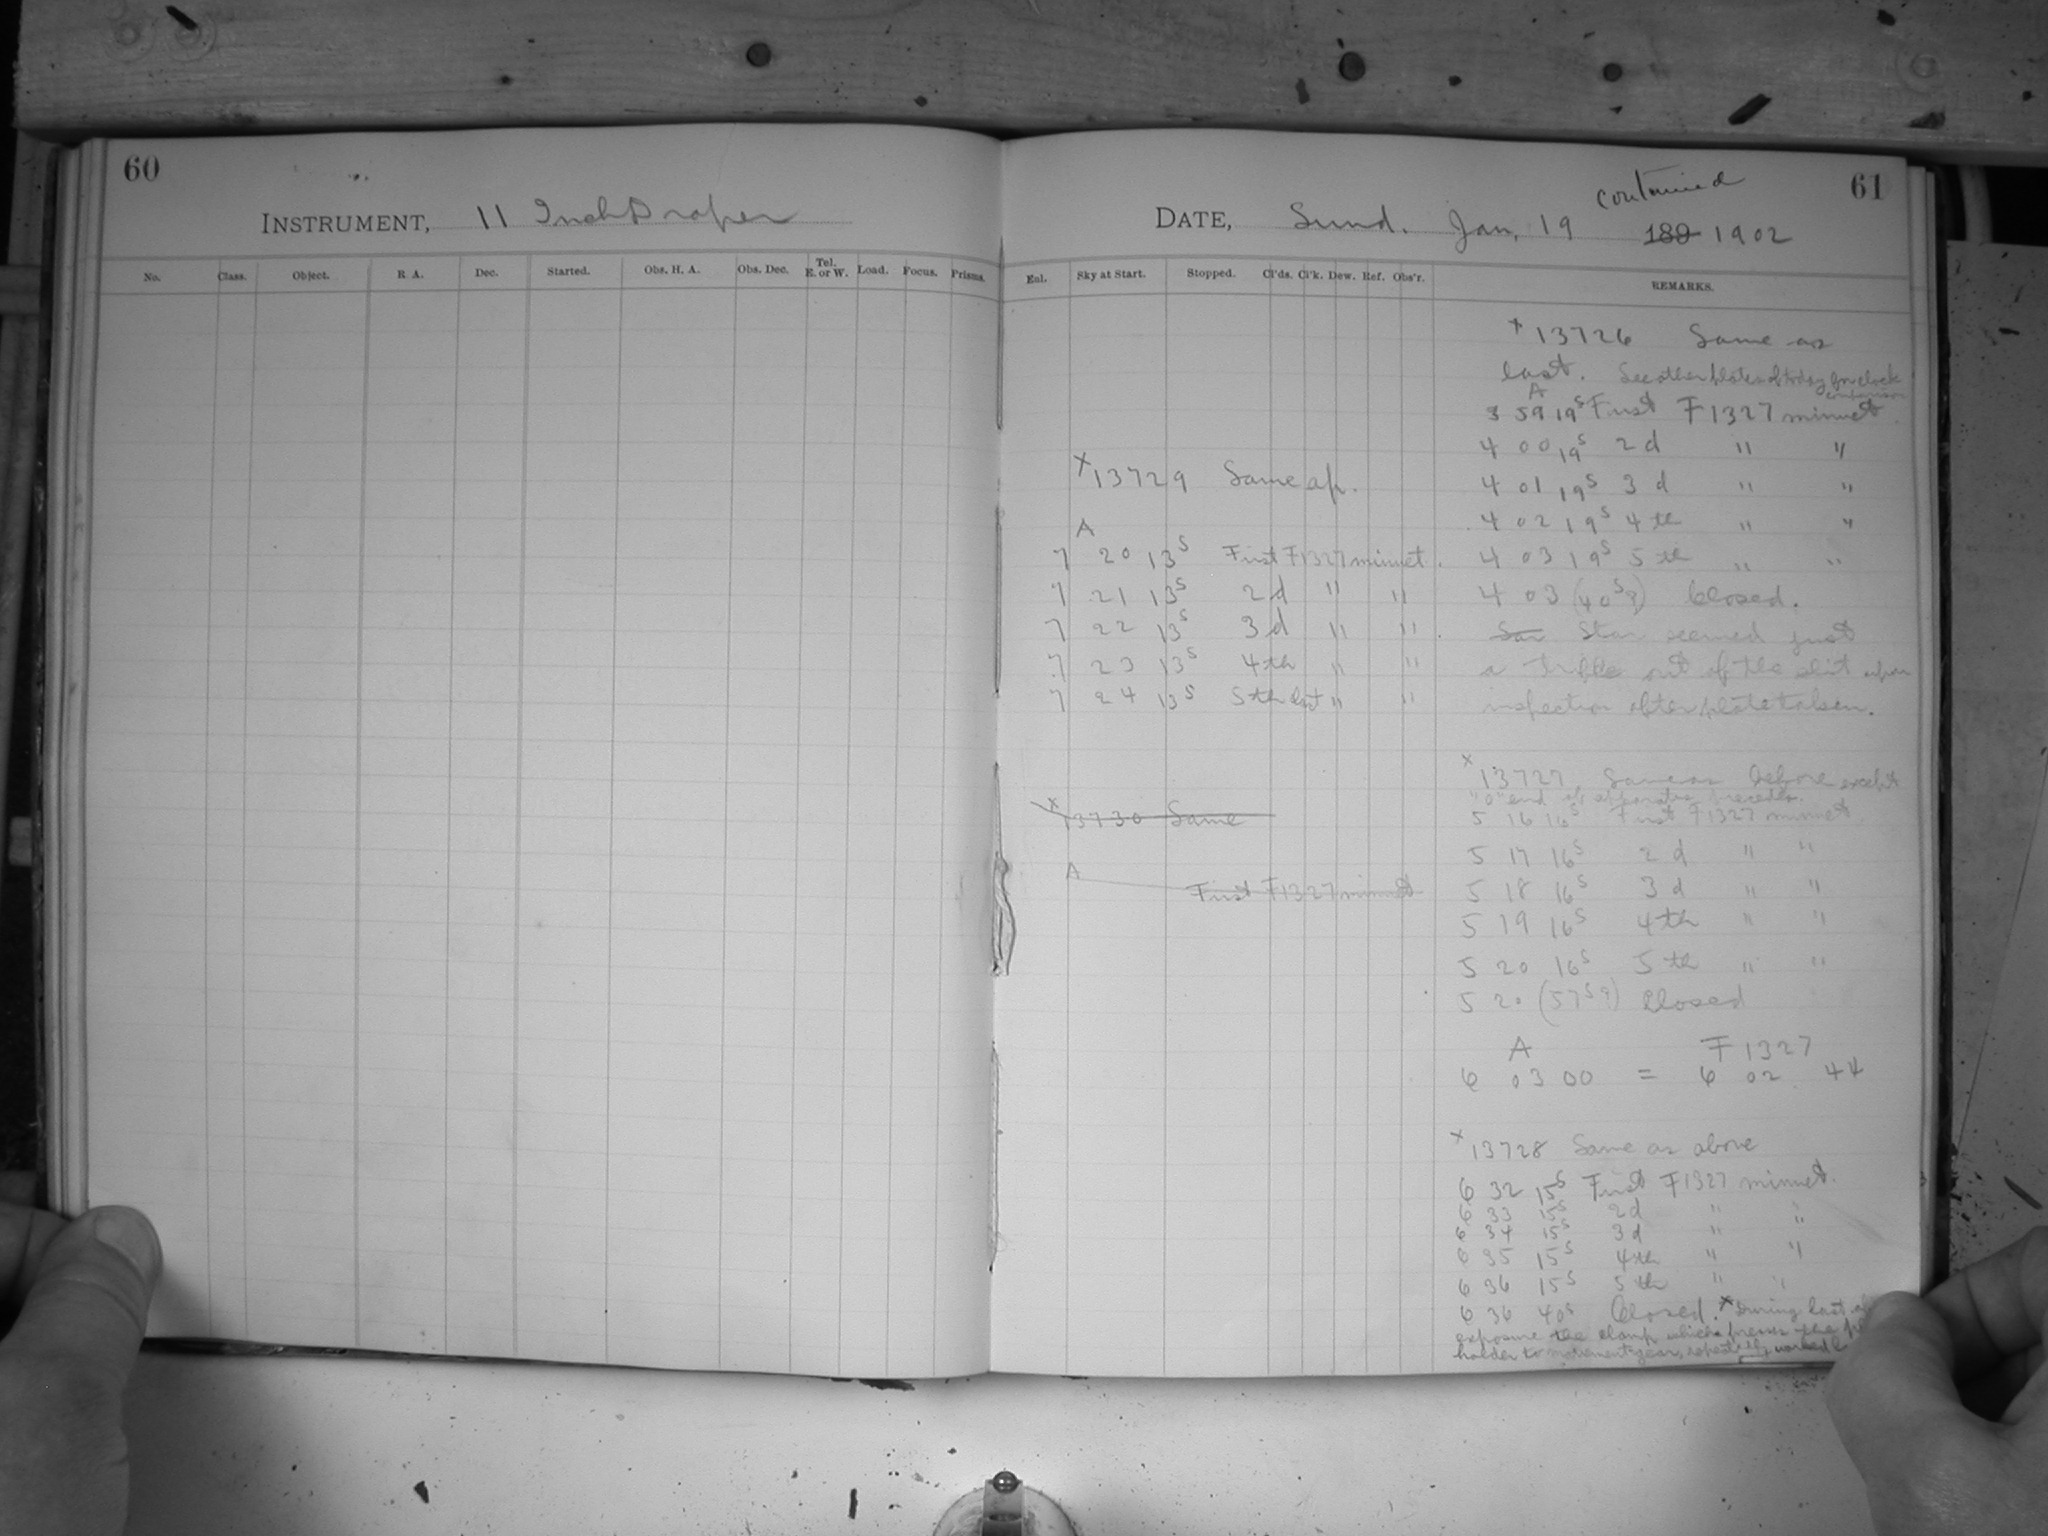 60
INSTRUMENT, 11 Inch Draper
No. Class. Object. R A. Dec. Started. Obs. H. A. Obs. Dec. Tel. E. or W. Load. Focus. Prisms.
continued
61
DATE, Sund. Jan, 19 189 1902
Enl. Sky at Start. Stopped. Cl'ds. Cl'k. Dew. Ref. Obs'r. REMARKS.
x 13729 Same ap.
A
7 20 13s First F1327 minnet.
7 21 13s 2d " "
7 22 13s 3d " "
7 23 13s 4th " "
7 24 13s 5th last " "
x 13730 Same
A
First F1327 minnet
x 13726 Same as
last. See other plates of today for clock
comparison
A
3 59 19s First F1327 minnet
4 00 19s 2d " "
4 01 19s 3d " "
4 02 19s 4th " "
4 03 19s 5th " "
4 03 (40s?) Closed.
Sar Star seemed just
a trifle out of the slit upon
inspection after plate taken.
x 13727 Same as before except
"o" end of apparatus precedes.
5 16 16s First F1327 minnet
5 17 16s 2d " "
5 18 16s 3d " "
5 19 16s 4th " "
5 20 16s 5th " "
5 20 (57s?) Closed
A F1327
6 03 00 = 6 02 44
x 13728 Same as above
6 32 15s First F1327 minnet.
6 33 15s 2d " "
6 34 15s 3d " "
6 35 15s 4th " "
6 36 15s 5th " "
6 36 40s Closed. x During last
exposure the clamp which presses the
holder to movement gear, worked